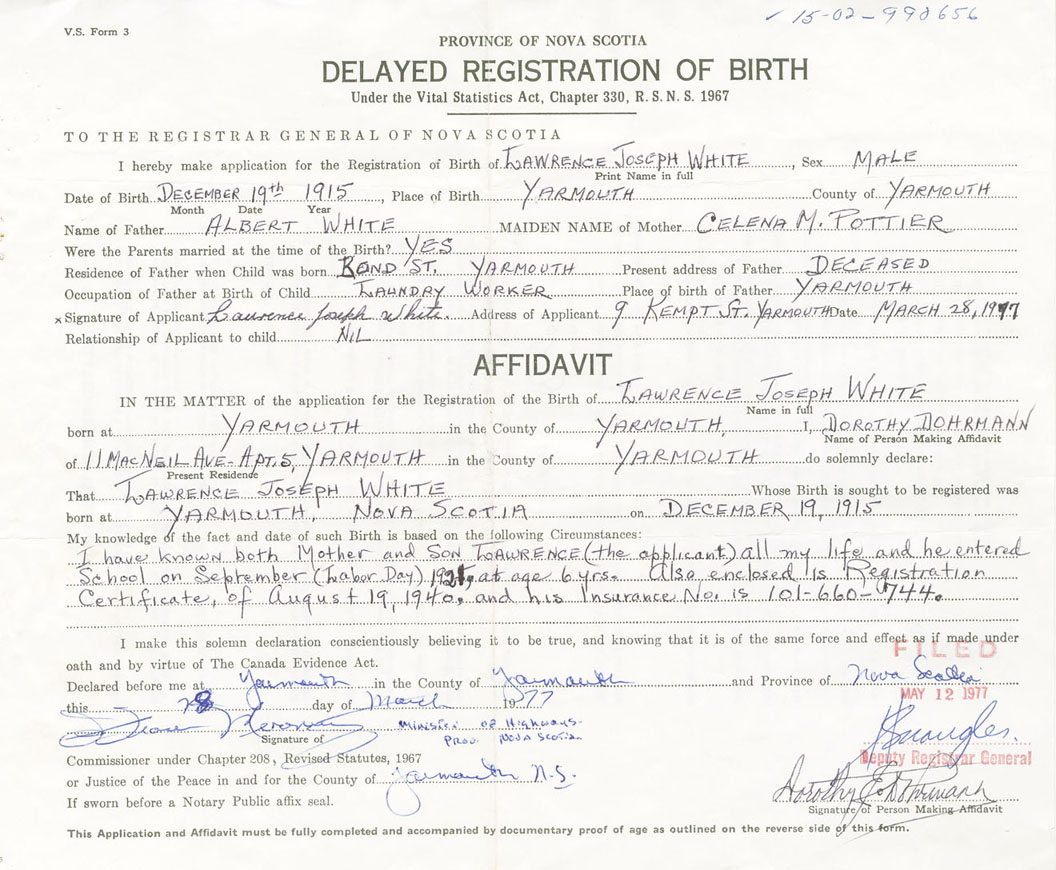 ✓ 15-02-990656
V.S. Form 3
PROVINCE OF NOVA SCOTIA
DELAYED REGISTRATION OF BIRTH
Under the Vital Statistics Act, Chapter 330, R. S. N. S. 1967
TO THE REGISTRAR GENERAL OF NOVA SCOTIA
I hereby make application for the Registration of Birth of LAWRENCE JOSEPH WHITE, Sex MALE
Print Name in full
Date of Birth DECEMBER 19th 1915, Place of Birth YARMOUTH County of YARMOUTH
Month Date Year
Name of Father ALBERT WHITE MAIDEN NAME of Mother CELENA M. POTTIER
Were the Parents married at the time of the Birth? YES
Residence of Father when Child was born BOND ST. YARMOUTH Present address of Father DECEASED
Occupation of Father at Birth of Child LAUNDRY WORKER Place of birth of Father YARMOUTH
x Signature of Applicant Lawrence Joseph White. Address of Applicant 9 KEMPT ST. YARMOUTH Date MARCH 28, 1977
Relationship of Applicant to child NIL
AFFIDAVIT
IN THE MATTER of the application for the Registration of the Birth of LAWRENCE JOSEPH WHITE
Name in full
born at YARMOUTH in the County of YARMOUTH, I, DOROTHY DOHRMANN
Name of Person Making Affidavit
of 11 MACNEIL AVE- APT. 5, YARMOUTH in the County of YARMOUTH do solemnly declare:
Present Residence
That LAWRENCE JOSEPH WHITE Whose Birth is sought to be registered was
born at YARMOUTH, NOVA SCOTIA on DECEMBER 19, 1915
My knowledge of the fact and date of such Birth is based on the following Circumstances:
I have known both Mother and SON LAWRENCE (the applicant) all my life and he entered
School on September (Labor Day) 1921, at age 6 yrs. Also enclosed is Registration
Certificate, of August 19, 1940. and his Insurance No. is 101-660-744.
I make this solemn declaration conscientiously believing it to be true, and knowing that it is of the same force and effect as if made under
oath and by virtue of The Canada Evidence Act.
FILED
Declared before me at Yarmouth in the County of Yarmouth and Province of Nova Scotia
MAY 12 1977
this 28 day of March 1977
Minister of Highways-
Prov. Nova Scotia
Signature of
Commissioner under Chapter 208, Revised Statutes, 1967
Deputy Registrar General
or Justice of the Peace in and for the County of Yarmouth N.S.
Dorothy E. Dohrmann
If sworn before a Notary Public affix seal.
Signature of Person Making Affidavit
This Application and Affidavit must be fully completed and accompanied by documentary proof of age as outlined on the reverse side of this form.